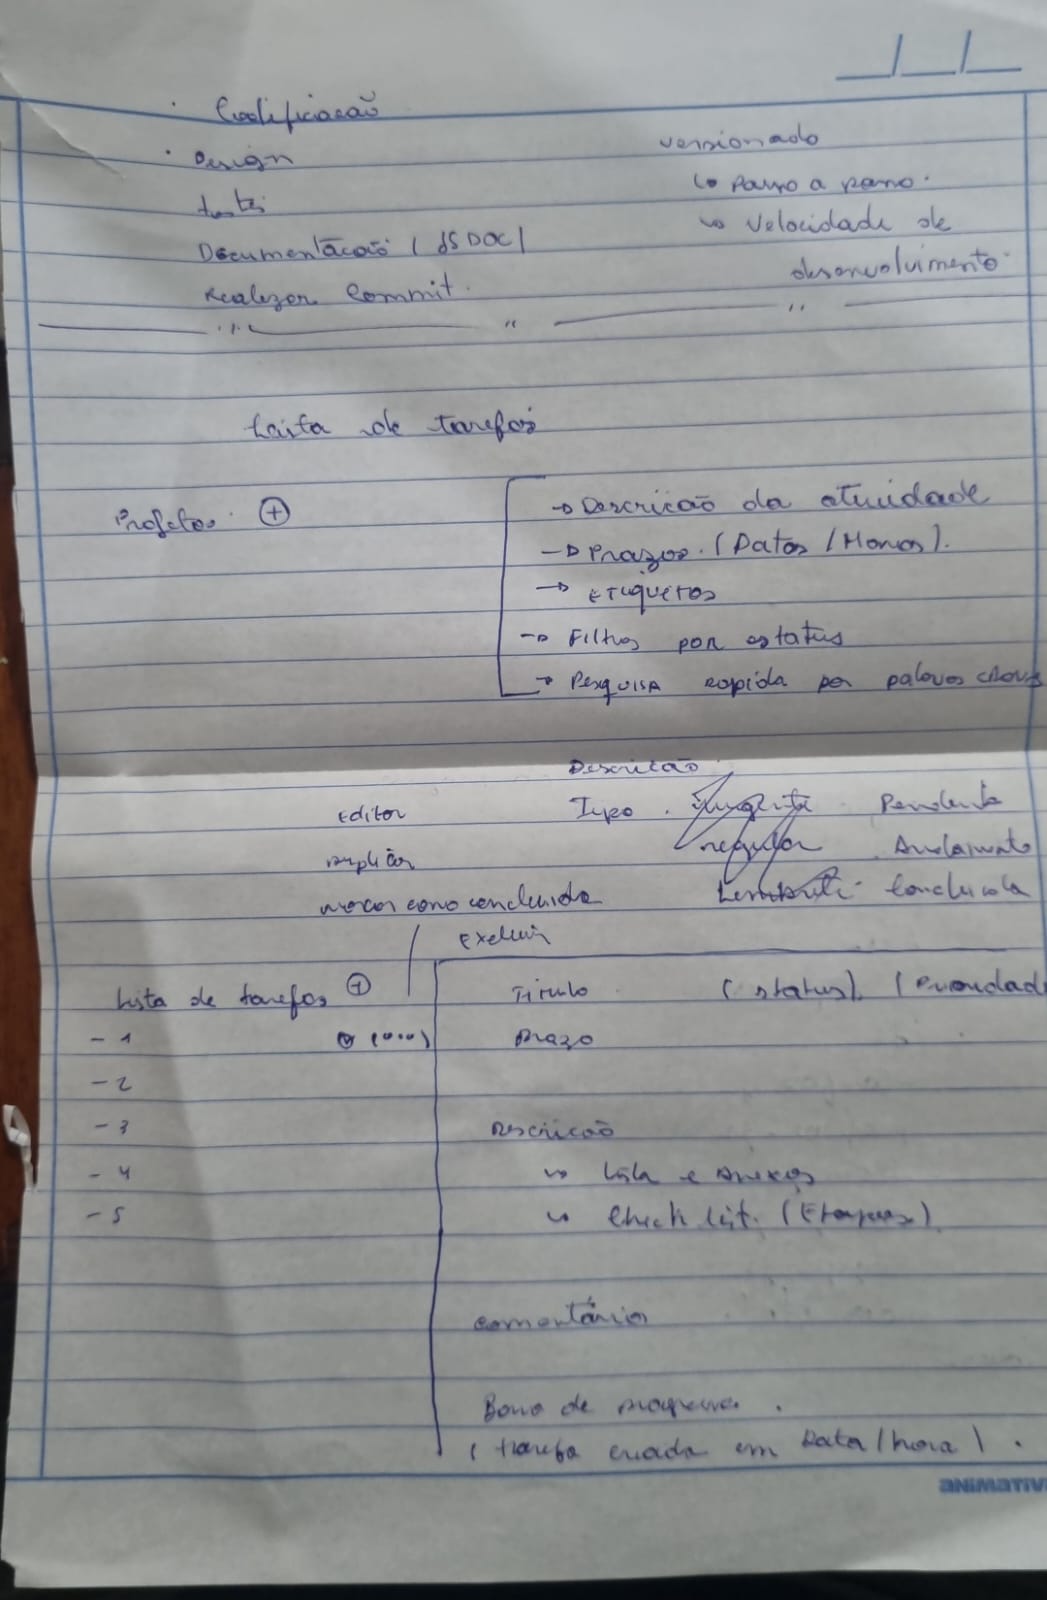 Codificação
Design
testes
Documentação (JSDOC)
Realizar Commit.
versionado
↳ Passo a passo.
↳ Velocidade de
desenvolvimento
Lista de tarefas
Projetos +
→ Descrição da atividade
→ Prazos. (Datas / Horas).
→ Etiquetas
→ Filtros por estatus
→ Pesquisa rapida por palavas chaves
Descrição
Editar
Tipo. Urgente Pendente
regular Andamento
marcar como concluida
Lembrete Concluida
Excluir
Lista de tarefas +
- 1 (...)
- 2
- 3
- 4
- 5
Titulo (status). (Prioridad
Prazo
Descrição
↳ Lista e Anexos
↳ Check list. (Etapas)
comentários
Barra de progresso.
(tarefa criada em Data/hora).
animativ